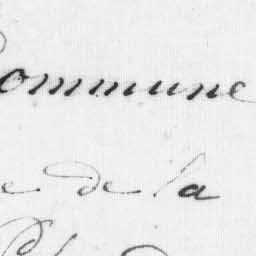 Commune
e de la